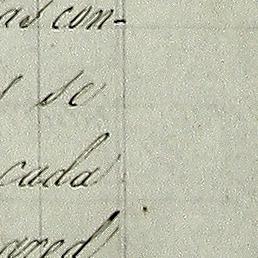 as con-
s se
cada
ared